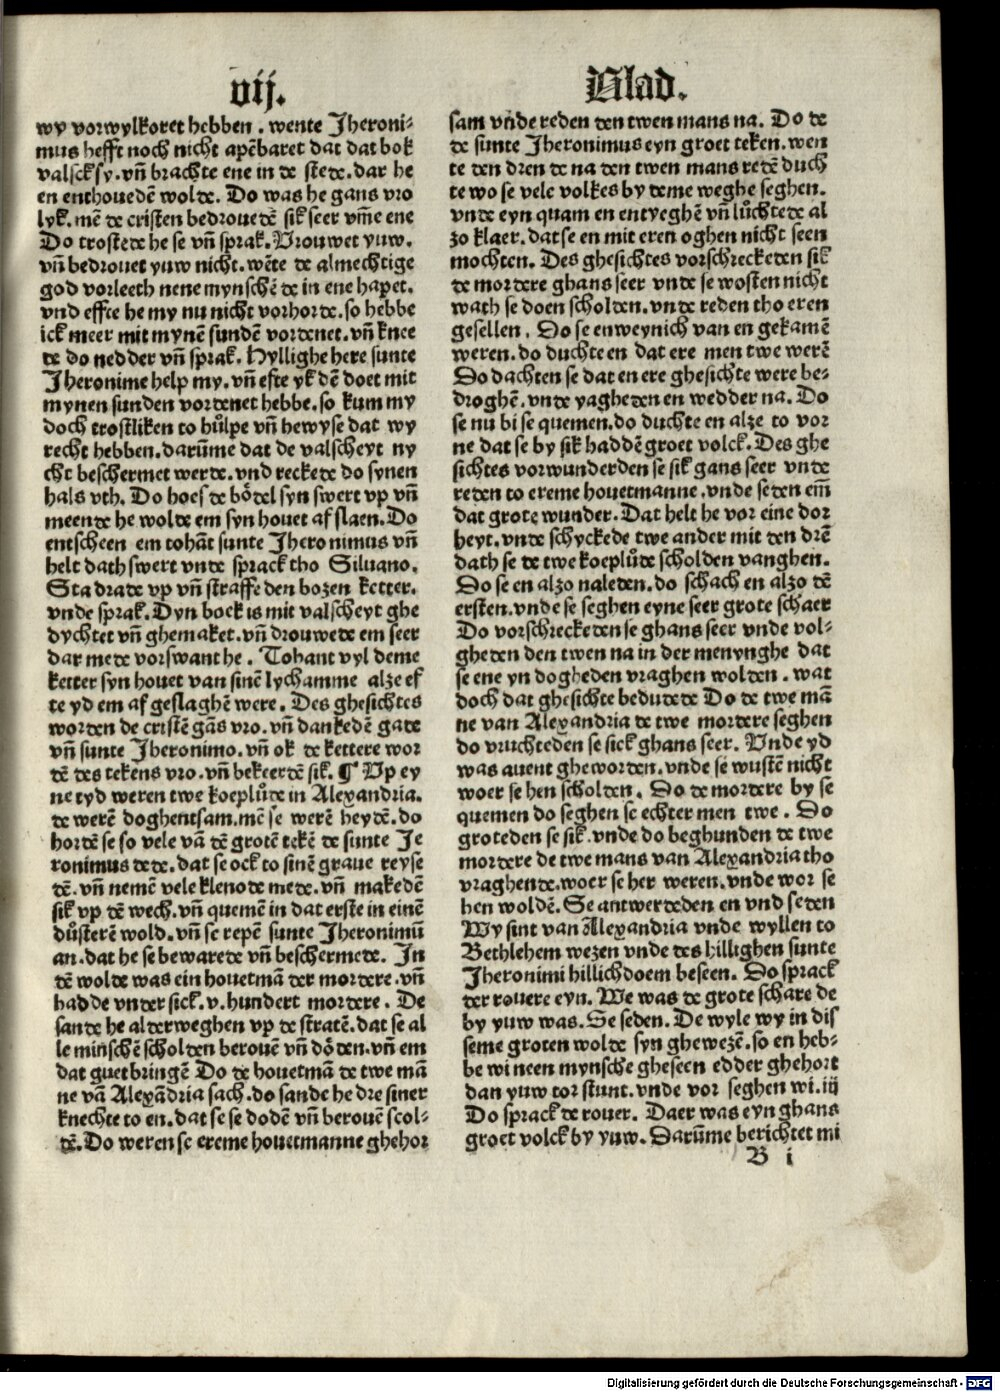 vij.
Blad.
wy vorwylkoret hebben . wente Jheroni-
mus hefft noch nicht apēbaret dat dat bok
valsck sy. vn̄ brachte ene in de stede. dar he
en enthouedē wolde. Do was he gans vro
lyk. mē de cristen bedrouedē sik seer vm̄e ene
Do trostede he se vn̄ sprak. Vrouwet yuw.
vn̄ bedrouet yuw nicht. wēte de almechtige
god vorleeth nene mynschē de in ene hapet.
vnd effte he my nu nicht vorhorde. so hebbe
ick meer mit mynē sundē vordenet. vn̄ knee
de do nedder vn̄ sprak. Hyllighe here sunte
Jheronime help my. vn̄ efte yk dē doet mit
mynen sunden vordenet hebbe. so kum my
doch trostliken to hulpe vn̄ bewyse dat wy
recht hebben. darūme dat de valscheyt ny
cht beschermet werde. vnd reckede do synen
hals vth. Do hoef de bödel syn swert vp vn̄
meende he wolde em syn houet af slaen. Do
entscheen em tohāt sunte Jheronimus vn̄
helt dath swert vnde sprack tho Siluano.
Sta drade vp vn̄ straffe den bozen ketter.
vnde sprak. Dyn boek is mit valscheyt ghe
dychtet vn̄ ghemaket. vn̄ drouwede em seer
dar mede vorswant he . Tohant vyl deme
ketter syn houet van sinē lychamme alze ef
te yd em af geslaghē were. Des ghesichtes
worden de cristē gās vro. vn̄ dankedē gade
vn̄ sunte Jheronimo. vn̄ ok de kettere wor
dē des tekens vro. vn̄ bekeerdē sik. ¶ Vp ey
ne tyd weren twe koeplude in Alexandria.
de werē doghentsam. mē se werē heydē. do
hordē se so vele vā dē grotē tekē de sunte Je
ronimus dede. dat se ock to sinē graue reyse
dē. vn̄ nemē vele klenode mede. vn̄ makedē
sik vp dē wech. vn̄ quemē in dat erste in einē
dusterē wold. vn̄ se repē sunte Jheronimū
an. dat he se bewarede vn̄ beschermede. In
dē wolde was ein houetmā der mordere. vn̄
hadde vnder sick. v. hundert mordere . De
sande he alderweghen vp de stratē. dat se al
le minschē scholden berouē vn̄ döden. vn̄ em
dat guet bringē Do de houetmā de twe mā
ne vā Alexādria sach. do sande he dre siner
knechte to en. dat se se dodē vn̄ berouē scol-
dē. Do weren se ereme houetmanne ghehor
sam vnde reden den twen mans na. Do de
de sunte Jheronimus eyn groet teken. wen
te den dren de na den twen mans redē duch
te wo se vele volkes by deme weghe seghen.
vnde eyn quam en entyeghē vn̄ luchtede al
zo klaer. dat se en mit eren oghen nicht seen
mochten. Des ghesichtes vorschreckeden sik
de mordere ghans seer vnde se wosten nicht
wath se doen scholden. vnde reden tho eren
gesellen . Do se enweynich van en gekamē
weren. do duchte en dat ere men twe werē
Do dachten se dat en ere ghesichte were be-
droghē. vnde yagheden en wedder na. Do
se nu bi se quemen. do duchte en alze to vor
ne dat se by sik haddē groet volck. Des ghe
sichtes vorwunderden se sik gans seer vnde
reden to ereme houetmanne. vnde seden em̄
dat grote wunder. Dat helt he vor eine dor
heyt. vnde schyckede twe ander mit den drē
dath se de twe koeplude scholden vanghen.
Do se en alzo naleden. do schach en alzo dē
ersten. vnde se seghen eyne seer grote schaer
Do vorschreckeden se ghans seer vnde vol-
gheden den twen na in der menynghe dat
se ene yn dogheden vraghen wolden . wat
doch dat ghesichte bedudede Do de twe mā
ne van Alexandria de twe mordere seghen
do vruchteden se sick ghans seer. Vnde yd
was auent gheworden. vnde se wustē nicht
woer se hen scholden . Do de mordere by se
quemen do seghen se echter men twe . Do
groteden se sik. vnde do beghunden de twe
mordere de twe mans van Alexandria tho
vraghende. woer se her weren. vnde wor se
hen woldē. Se antwerdeden en vnd seden
Wy sint van Alexandria vnde wyllen to
Bethlehem wezen vnde des hillighen sunte
Jheronimi hillichdoem beseen. Do sprack
der rouere eyn. We was de grote schare de
by yuw was. Se seden. De wyle wy in dis
seme groten wolde syn ghewezē. so en heb-
be wi neen mynsche gheseen edder ghehort
dan yuw tor stunt. vnde vor seghen wi. iij
Do sprack de rouer. Daer was eyn ghans
groet volck by yuw. Darūme berichtet mi
B i
Digitalisierung gefördert durch die Deutsche Forschungsgemeinschaft - DFG